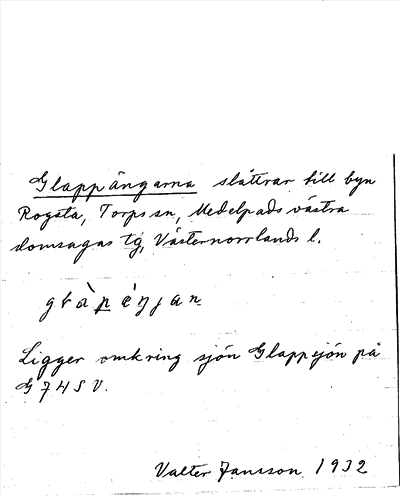 Glappängarna slåttrar till byn
Rogsta, Torps sn, Medelpads västra
domsagas tg, Västernorrlands l.
Ligger omkring sjön Glappsjön på
G 74 SV.
Valter Jansson 1932